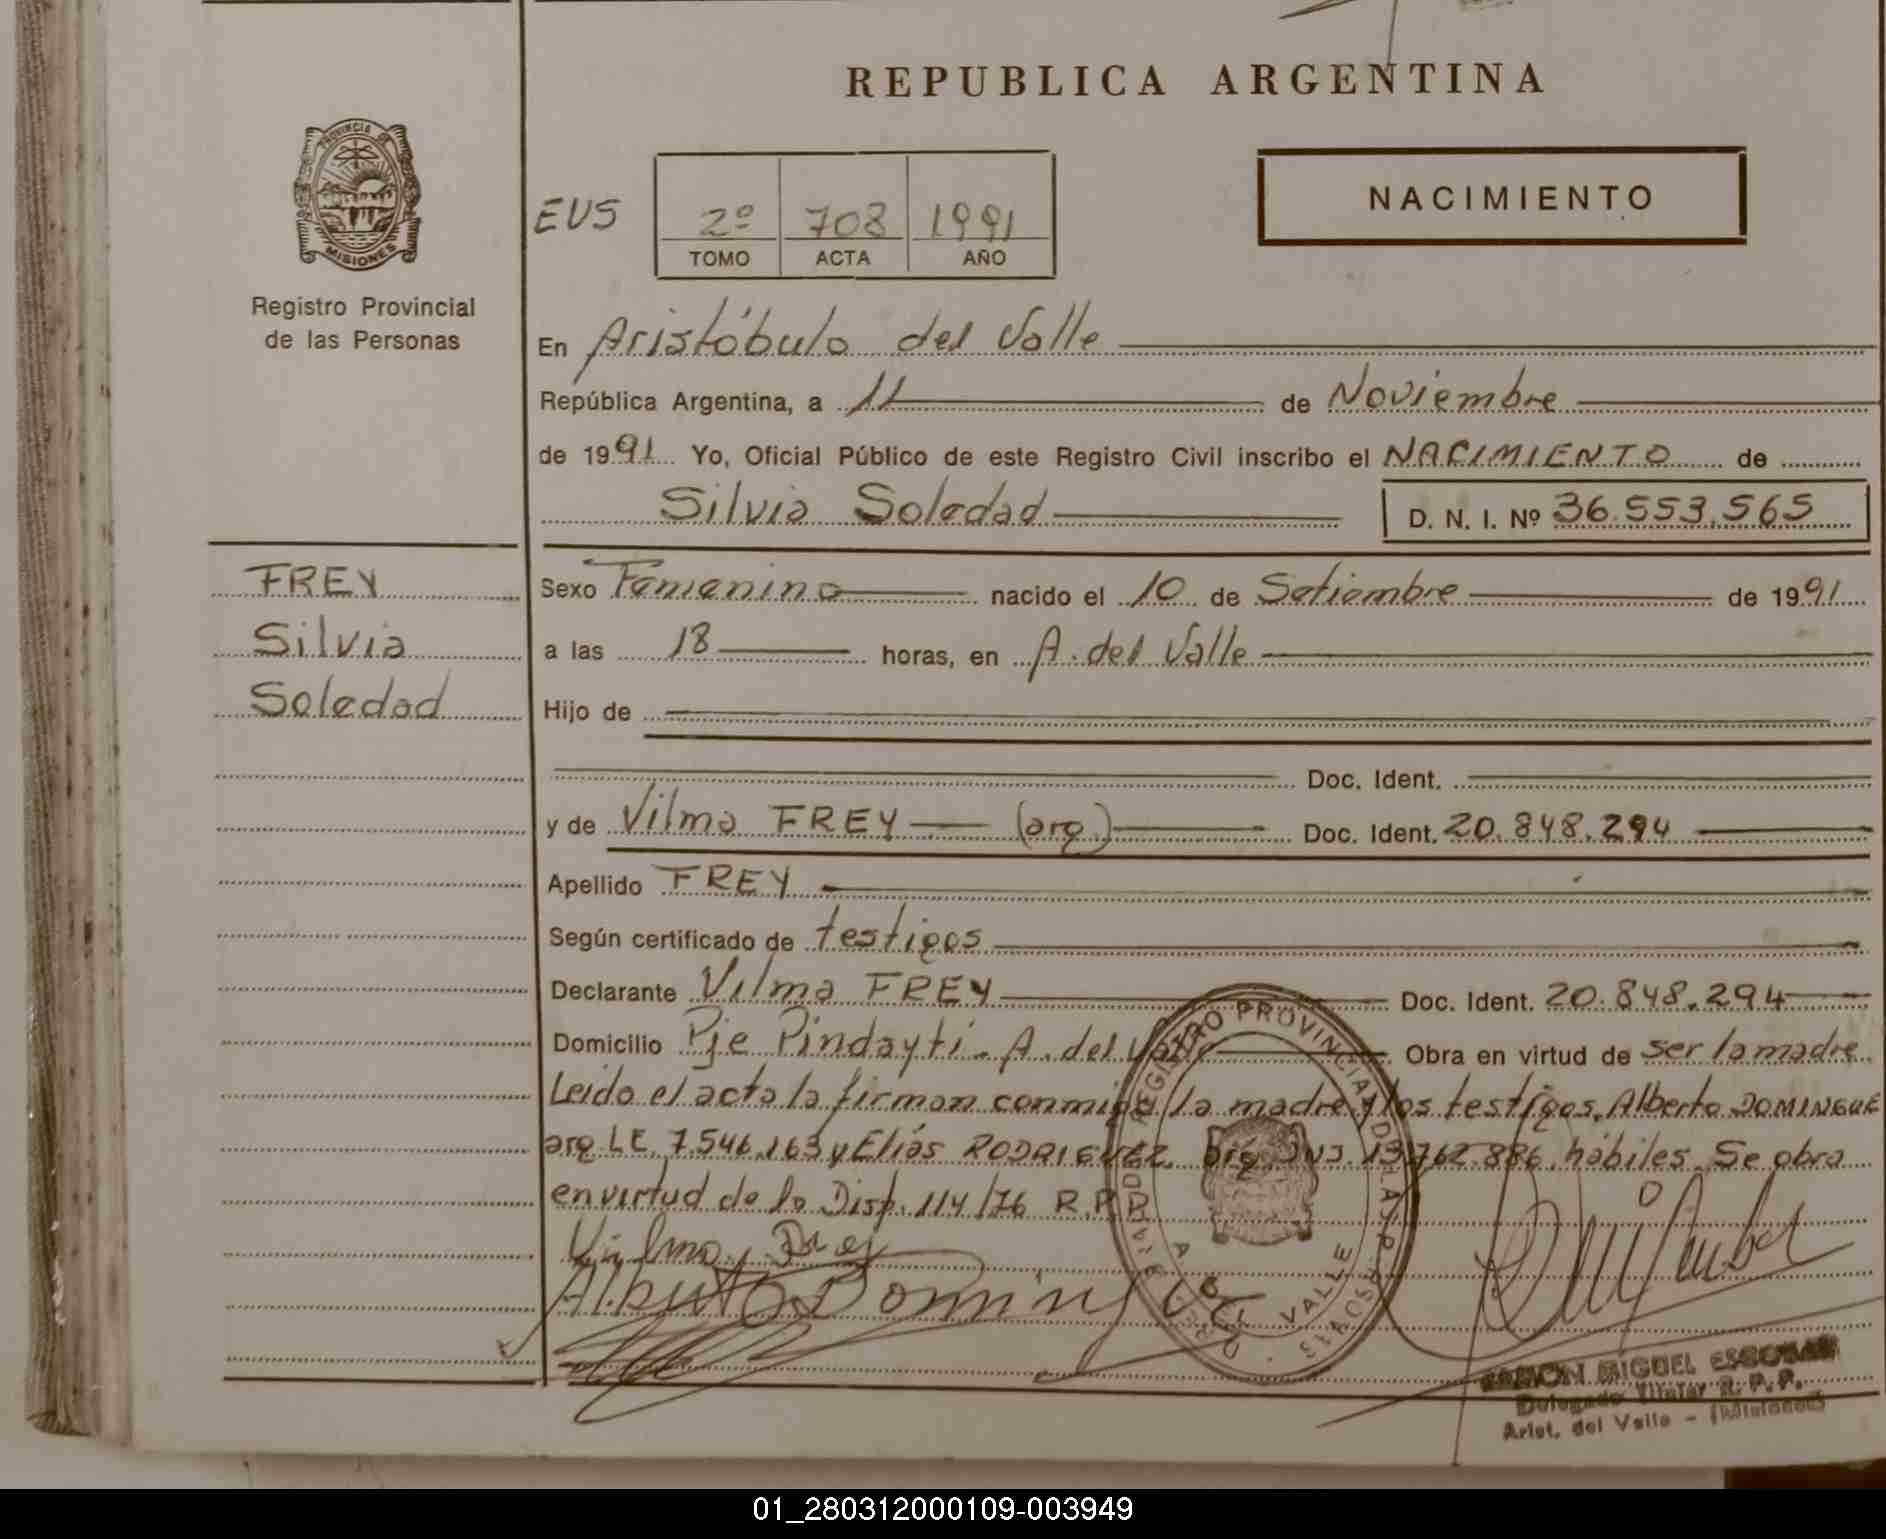 REPUBLICA ARGENTINA
PROVINCIA DE
MISIONES
Registro Provincial
de las Personas
EUS
2º 708 1991
TOMO ACTA AÑO
NACIMIENTO
En Aristóbulo del Valle
República Argentina, a 11 de Noviembre
de 1991 Yo, Oficial Público de este Registro Civil inscribo el NACIMIENTO de
Silvia Soledad D. N. I. Nº 36.553.565
FREY
Silvia
Soledad
Sexo Femenino nacido el 10 de Setiembre de 1991
a las 18 horas, en A. del Valle
Hijo de
Doc. Ident.
y de Vilma FREY (arg.) Doc. Ident. 20.848.294
Apellido FREY
Según certificado de testigos
Declarante Vilma FREY Doc. Ident. 20.848.294
Domicilio Pje Pindayti - A. del Valle Obra en virtud de ser la madre
Leido el acta la firman conmigo la madre y los testigos, Alberto DOMINGUE
arg. LE. 7.546.163 y Eliás RODRIGUEZ arg. DNI 13.762.886, hábiles. Se obra
en virtud de la Disp. 114/76 R.P.P.
Vilma Frey
Alberto Domingue
REGISTRO PROVINCIAL DE LAS PERSONAS
DEL VALLE
RAMON MIGUEL ESCOBAR
Delegado Titular R. P. P.
Arist. del Valle - (Misiones)
01_280312000109-003949